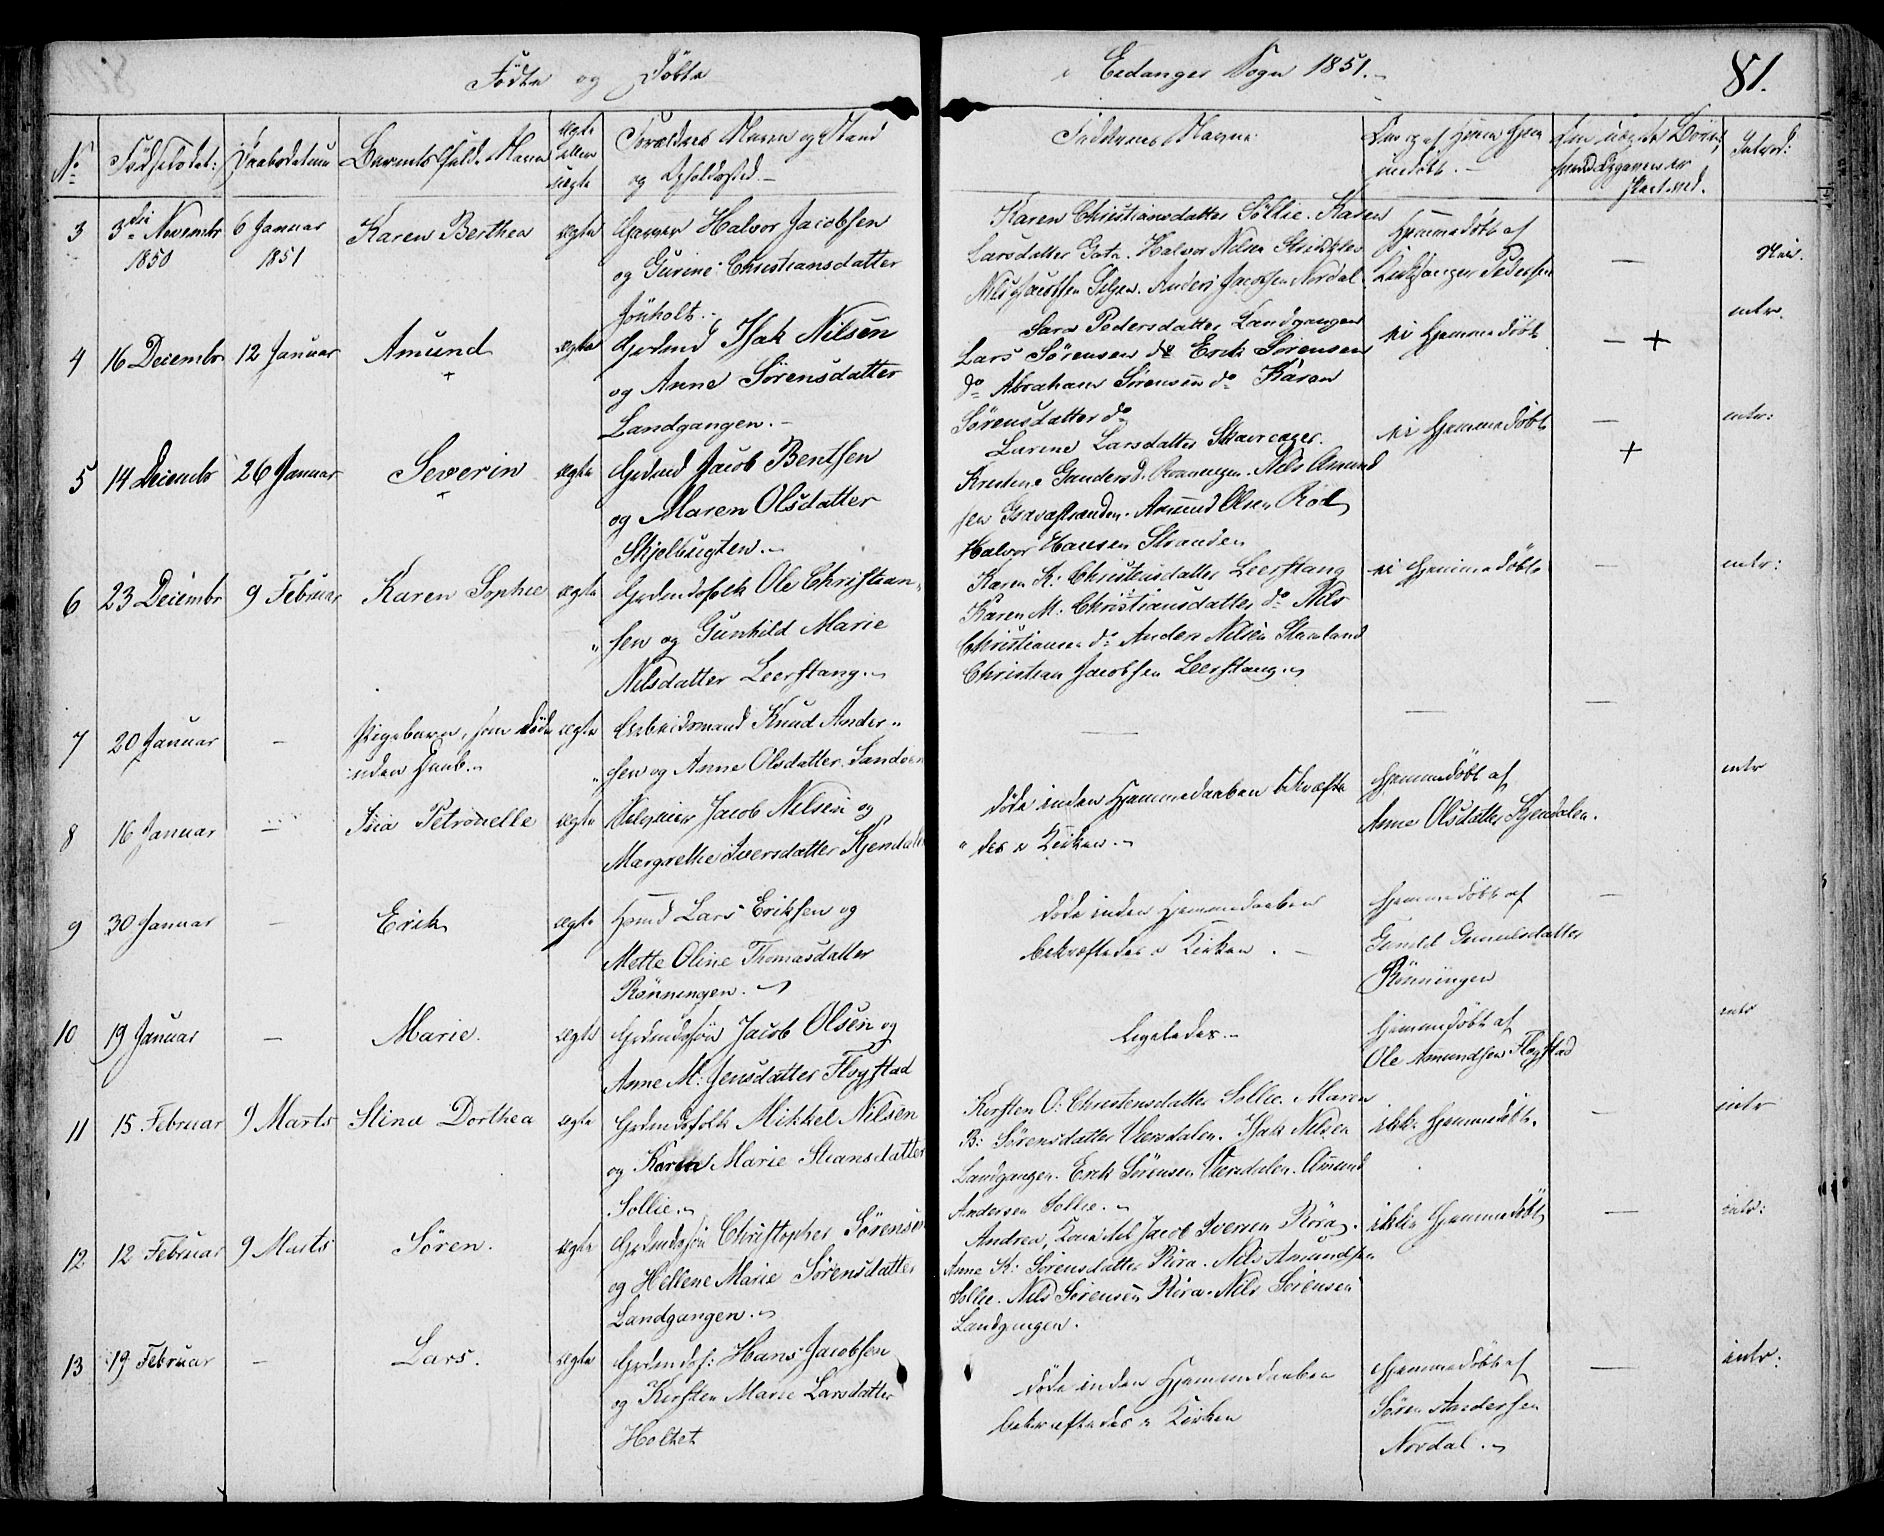 Födte og Döbte
i Eedanger Sogn 1851.
81.
No
Födselsdat:
Daabsdatum
Barnets fulde Navn
ægte
eller
uægte
Forældres Navn og Stand
og Opholdssted.
Faddernes Navne
Introd:
3
3die Novembr
1850
6 Januar
1851
Karen Berthea
ægte
Halvor Jacobsen
og Gurine Christiansdatter
Jönholt.
Karen Christiansdatter Söllie. Karen
Larsdatter Halvor Nilsen
Nils Jacobsen Anders Jacobsen Nordal.
Hjemmedöbt af
Kirkesanger Pedersen
—
4
16 Decembr
12 Januar
Amund
+
ægte
Grdmd Isak Nilsen
og Anne Sörensdatter
Landgangen.
Sara Pedersdatter Landgangen
Lars Sörensen do Erik Sörensen
do Abraham Sörensen do Karen
Sörensdatter do
ei Hjemmedöbt
— +
intr.
5
14 Decembr
26 Januar
Severin
+
ægte
Grdmd Jacob Bentsen
og Maren Olsdatter
Skjelbugten.
Larine Larsdatter
Nils Amund
sen Amund Olsen Röd
Halvor Hansen Stranden
ei Hjemmedöbt
—
+
intr:
6
23 Decembr
9 Februar
Karen Sophie
ægte
Grdmdsfolk Ole Christian-
sen og Gunhild Marie
Nilsdatter Leerstang.
Karen K: Christensdatter Leerstang
Karen M: Christiansdatter do Nils
Christiansen do Anders Nilsen Stamland
Christian Jacobsen Leerstang.
ei Hjemmedöbt
—
intr:
7
20 Januar
—
Pigebarn, som döde
uden Daab.
ægte
Arbeidsmand Knud Ander-
sen og Anne Olsdatter Sandöen
—
—
—
8
16 Januar
—
Petronelle
ægte
Jacob Nilsen og
Margrethe Iversdatter Kjendalen
döde inden Hjemmedaaben bekræfte
des i Kirken.
Hjemmedöbt af
Anne Olsdatter Kjendalen.
intr
9
30 Januar
—
Erik
ægte
Lars Eriksen og
Mette Oline Thomasdatter
Rönningen.
döde inden Hjemmedaaben
bekræftedes i Kirken.
Hjemmedöbt af
Rönningen
—
10
19 Januar
—
Marie.
ægte
Jacob Olsen og
Anne M: Jensdatter Flogstad
Ligeledes.
Hjemmedöbt af
Ole Amundsen Flogstad
intr
11
15 Februar
9 Marts
Stina Dorthea
ægte
Grdmdsfolk Mikkel Nilsen
og Karen Marie Stiansdatter
Sollie.
Kirsten O: Christensdatter Sollie. Maren
B: Sörensdatter Versdalen. Isak Nilsen
Landgangen. Erik Sörensen Versdalen. Amund
Andersen Sollie.
ikke Hjemmedöbt.
—
intr
12
12 Februar
9 Marts
Sören.
ægte
Christopher Sörensen
og Hellene Marie Sörensdatter
Landgangen.
Andrea, Kone til Jacob Iversen Röra.
Anne K: Sörensdatter Röra. Nils Amundsen
Sollie. Nils Sörensen Röra. Nils Sörensen
Landgangen.
ikke Hjemmedöbt
—
intr:
13
19 Februar
—
Lars.
ægte
Hans Jacobsen
og Kirsten Marie Larsdatter
Holtet
döde inden Hjemmedaaben
bekræftedes i Kirken
Hjemmedöbt af
Sören Andersen
Nordal.
—
intr: